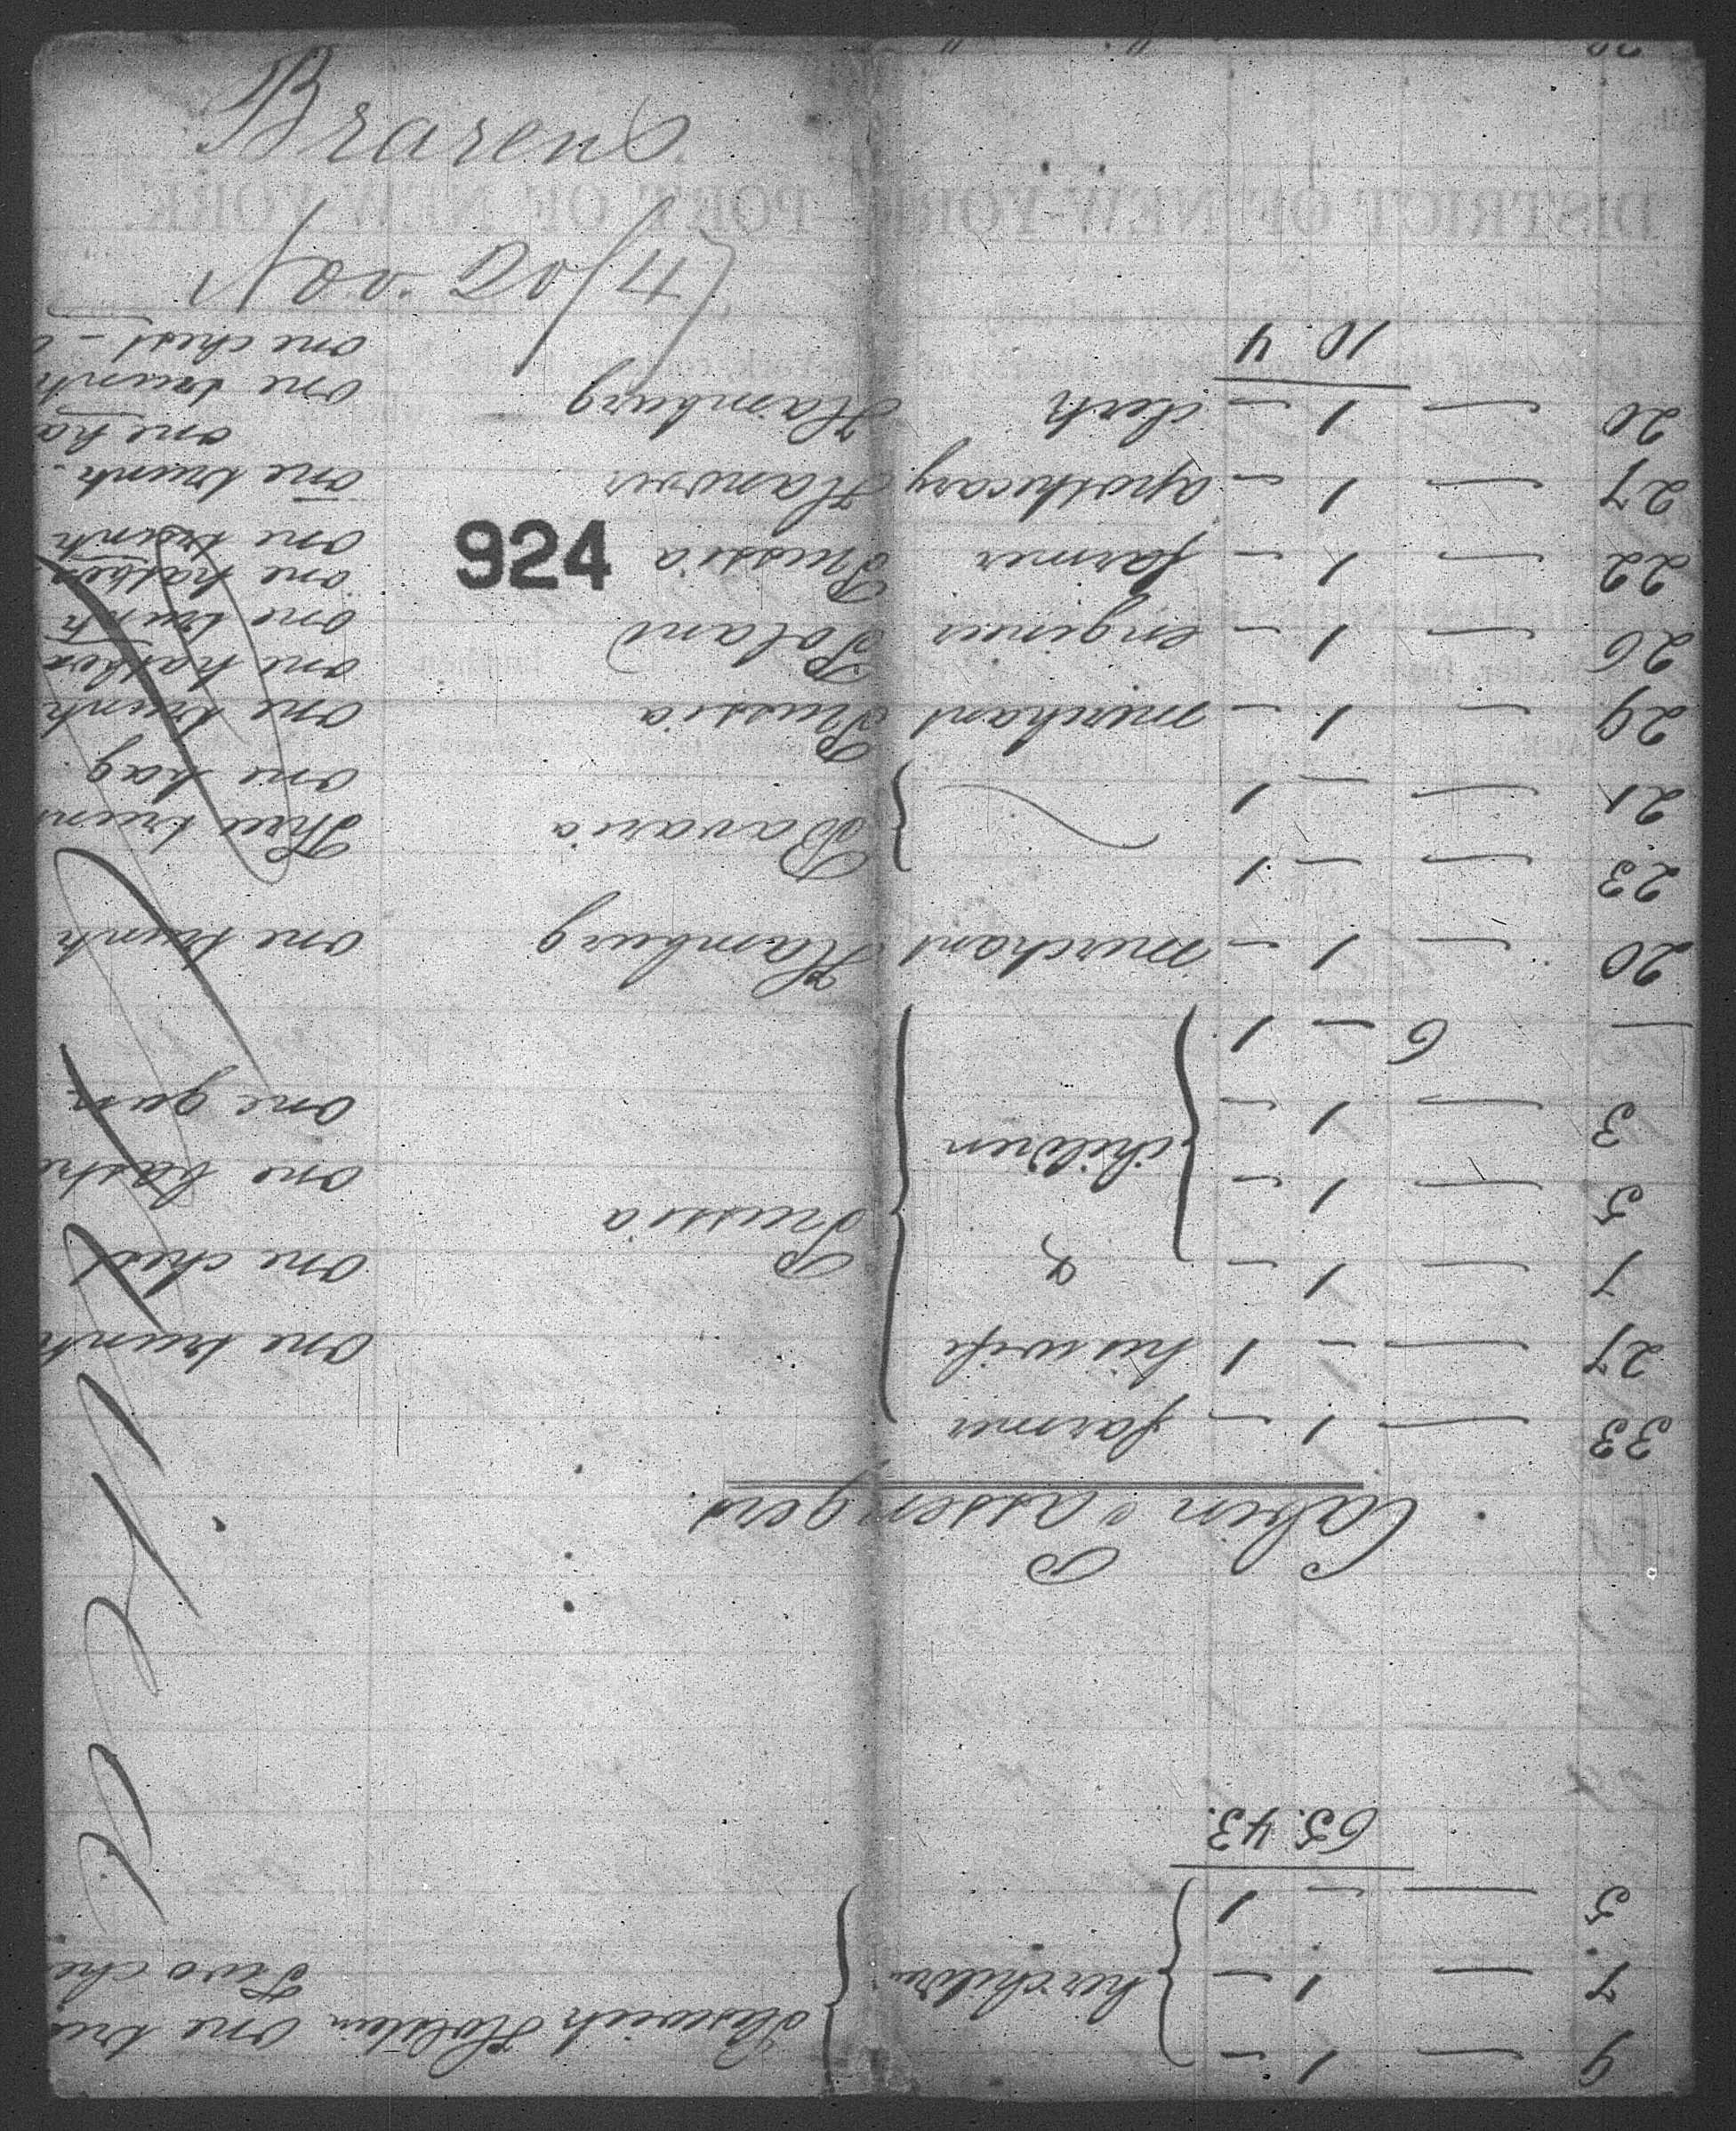 Brarens
Nov. 20/47
924
9 — 1 –
7 — 1 – her children Sleswick Holstein One tru
Two che
5 — – 1
65. 43.
Cabin Passengers
33 — 1 – farmer
27 — – 1 his wife one trunk
7 — 1 – & Prussia one chest
5 — 1 – children one baske
3 — 1 – one
— 6 – 1
20 — 1 – merchant Hamburg one trunk
23 — – 1 Bavaria Three trun
21 — – 1 one bag
29 — 1 – merchant Prussia one trunk
one hatbox
26 — 1 – engineer Poland one trunk
one hatbox
22 — 1 – farmer Prussia one trunk
27 — 1 – apothecary Hanover one trunk.
one ha
20 — 1 – clerk Hamburg one trunk
10 4 one chest –
DISTRICT OF NEW-YORK—PORT OF NEW-YORK.